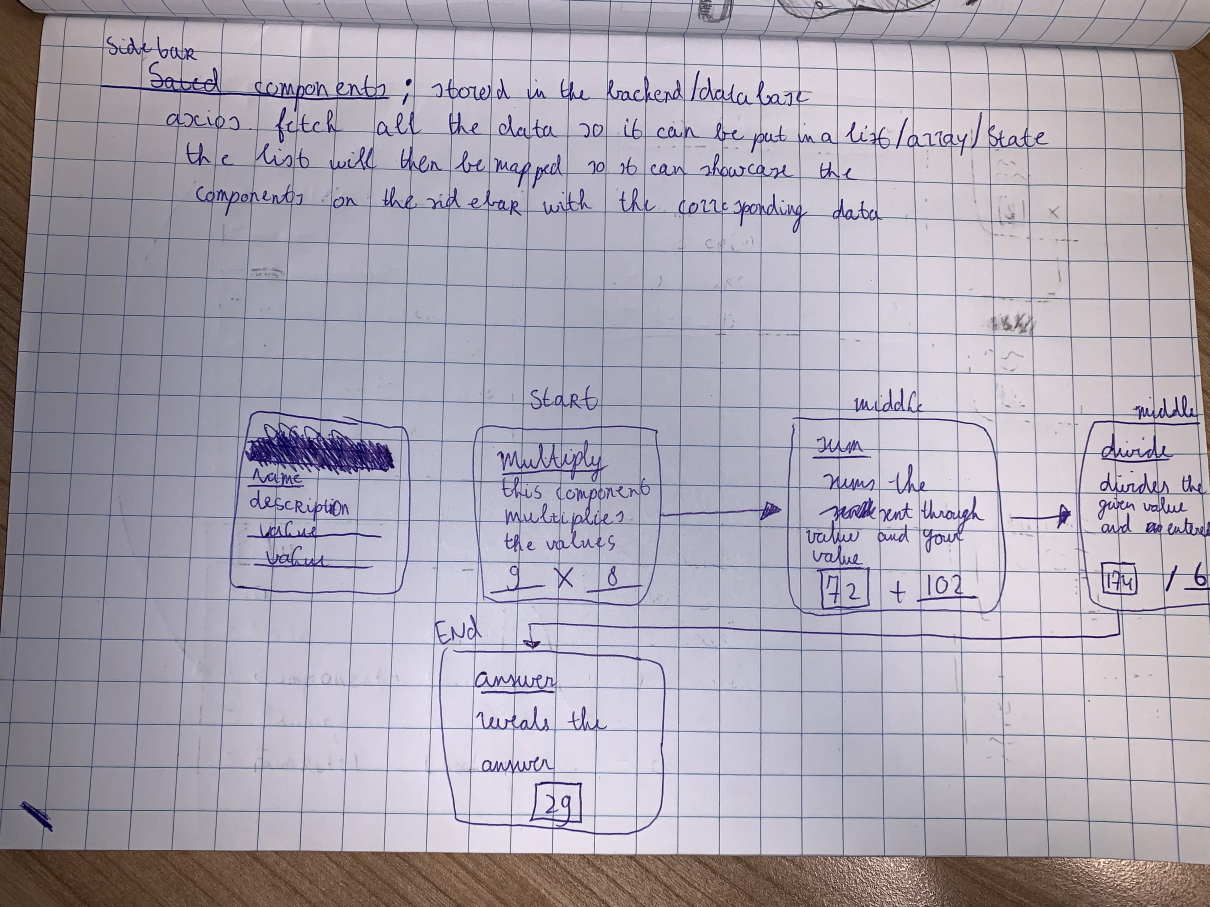 Sidebar
Saved components; stored in the backend/database
axios fetch all the data so it can be put in a list/array/State
the list will then be mapped so it can showcase the
components on the sidebar with the corresponding data
Name
description
value
value
START
Multiply
this component
multiplies
the values
9 X 8
middle
sum
sums the
sent through
value and your
value
72 + 102
middle
divide
divides the
given value
and entered
174 / 6
END
answer
reveals the
answer
29